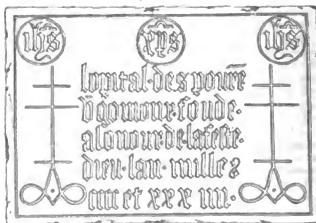 ihs xps ihs
lopital·des poure
fonde·
alonour de la feste·
dieu·lan·mille
cccc et xxx iiii·